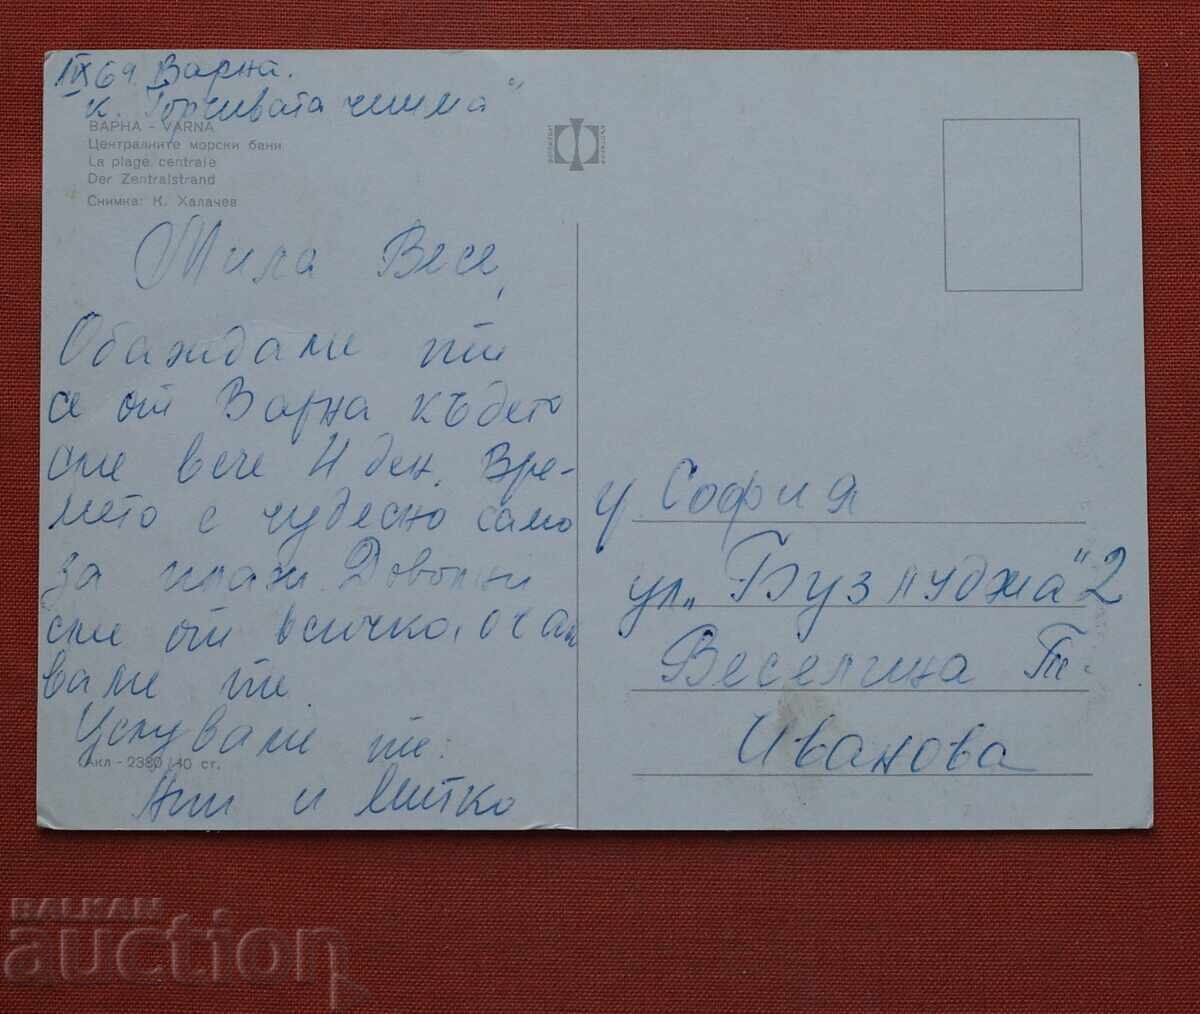 1 IX 69 Варна.
к. "Горчивата чешма"
ВАРНА - VARNA
Централните морски бани
La plage centrale
Der Zentralstrand
Снимка: К. Халачев
Мила Весе,
Обаждаме ти
се от Варна където
сме вече 4 ден. Вре-
мето е чудесно само
за плаж. Доволни
сме от всичко, очак
ваме те.
Целуваме те:
Акл - 2380 40 ст.
Ани и Митко
София
ул. "Бузлуджа" 2
Веселина
Иванова
BALKAN
auction